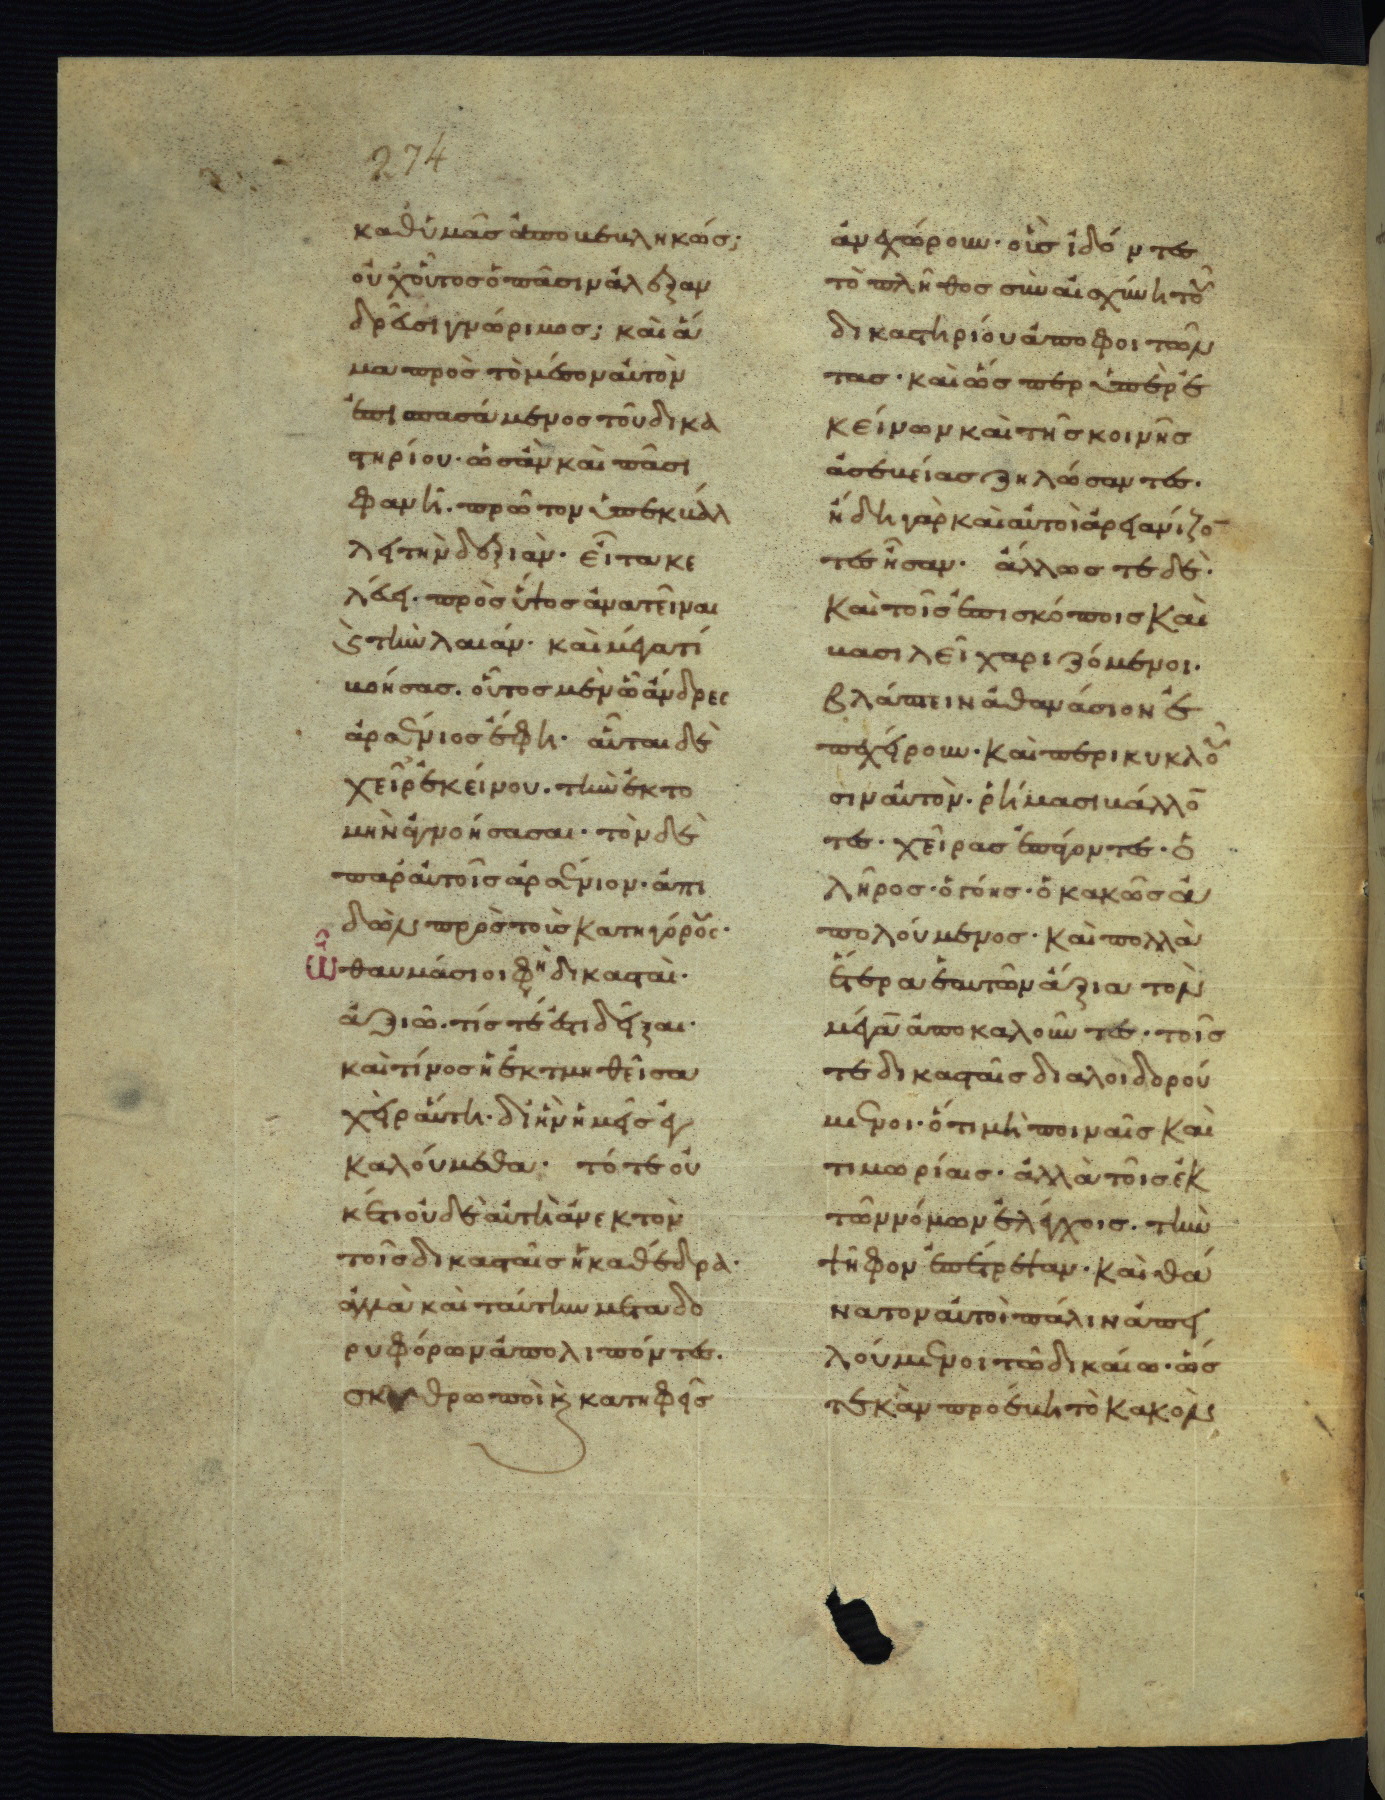 274
καθ ὑμᾶς ἀποβεβληκώς;
οὐχ οὗτος ὁ πᾶσιν ἀλεξαν
δρεῦσι γνώριμος; καὶ ἅ
μα πρὸς τὸ μέσον αὐτὸν
ἐπισπασάμενος τοῦ δικα
στηρίου· ὡς ἂν καὶ πᾶσι
φανῆ· πρῶτον ὑπεκβάλ
λει τὴν δεξιάν· εἶτα κε
λεύει· πρὸς ὕψος ἀνατεῖναι
καὶ τὴν λαιάν· καὶ μέγα τι
βοήσας· οὗτος μὲν ὦ ἄνδρες
ἀρσένιος ἔφη· αὗται δὲ
χεῖρες ἐκείνου· τὴν ἐκτο
μὴν ἀγνοήσασαι· τὸν δὲ
παρ αὐτοῖς ἀρσένιον· ἀπι
δὼν πρὸς τοὺς κατηγόρους·
ὦ θαυμάσιοι φη δικασταὶ·
ἀξιῶ· τίς τέ ἐστι δεῖξαι·
καὶ τίνος ἡ ἐκτμηθεῖσα
χεὶρ αὕτη· δι ἣν ἡμεῖς ἐγ
καλούμεθα· τότε οὐ
κέτι οὐδὲ αὐτὴ ἀνεκτὸν
τοῖς δικασταῖς ἡ καθέδρα·
ἀλλὰ καὶ ταύτην μετὰ δο
ρυφόρων ἀπολιπόντες·
σκυθρωποὶ κ κατηφεῖς
ἀνεχώρουν· οὓς ἰδόντες
τὸ πλῆθος σὺν αἰσχύνη τοῦ
δικαστηρίου ἀποφοιτῶν
τας· καὶ ὥσπερ ὑπὲρ ἐ
κείνων καὶ τῆς κοινῆς
ἀσεβείας ζηλώσαντες·
ἤδη γὰρ καὶ αὐτοὶ ἀρειανίζο
τες ἦσαν· ἄλλως τε δὲ·
καὶ τοῖς ἐπισκόποις καὶ
βασιλεῖ χαριζόμενοι·
βλάπτειν ἀθανάσιον ἐ
πεχείρουν· καὶ περικυκλοῦ
σιν αὐτὸν· ῥήμασι βάλλο
τες· χεῖρας ἐπαίροντες· ὁ
λῆρος· ὁ γόης· ὁ κακῶς ἀ
πολούμενος· καὶ πολλὰ
ἕτερα ἑαυτῶν ἄξια τὸν
μέγαν ἀποκαλοῦντες· τοῖς
τε δικασταῖς διαλοιδορού
μενοι· ὅτι μὴ ποιναῖς καὶ
τιμωρίαις· ἀλλὰ τοῖς ἐκ
τῶν νόμων ἐλέγχοις· τὴν
ψῆφον ἐπέτρεψαν· καὶ θά
νατον αὐτοὶ πάλιν ἀπει
λούμενοι τῶ δικαίω· ὥσ
τε κἂν προέβη τὸ κακὸν